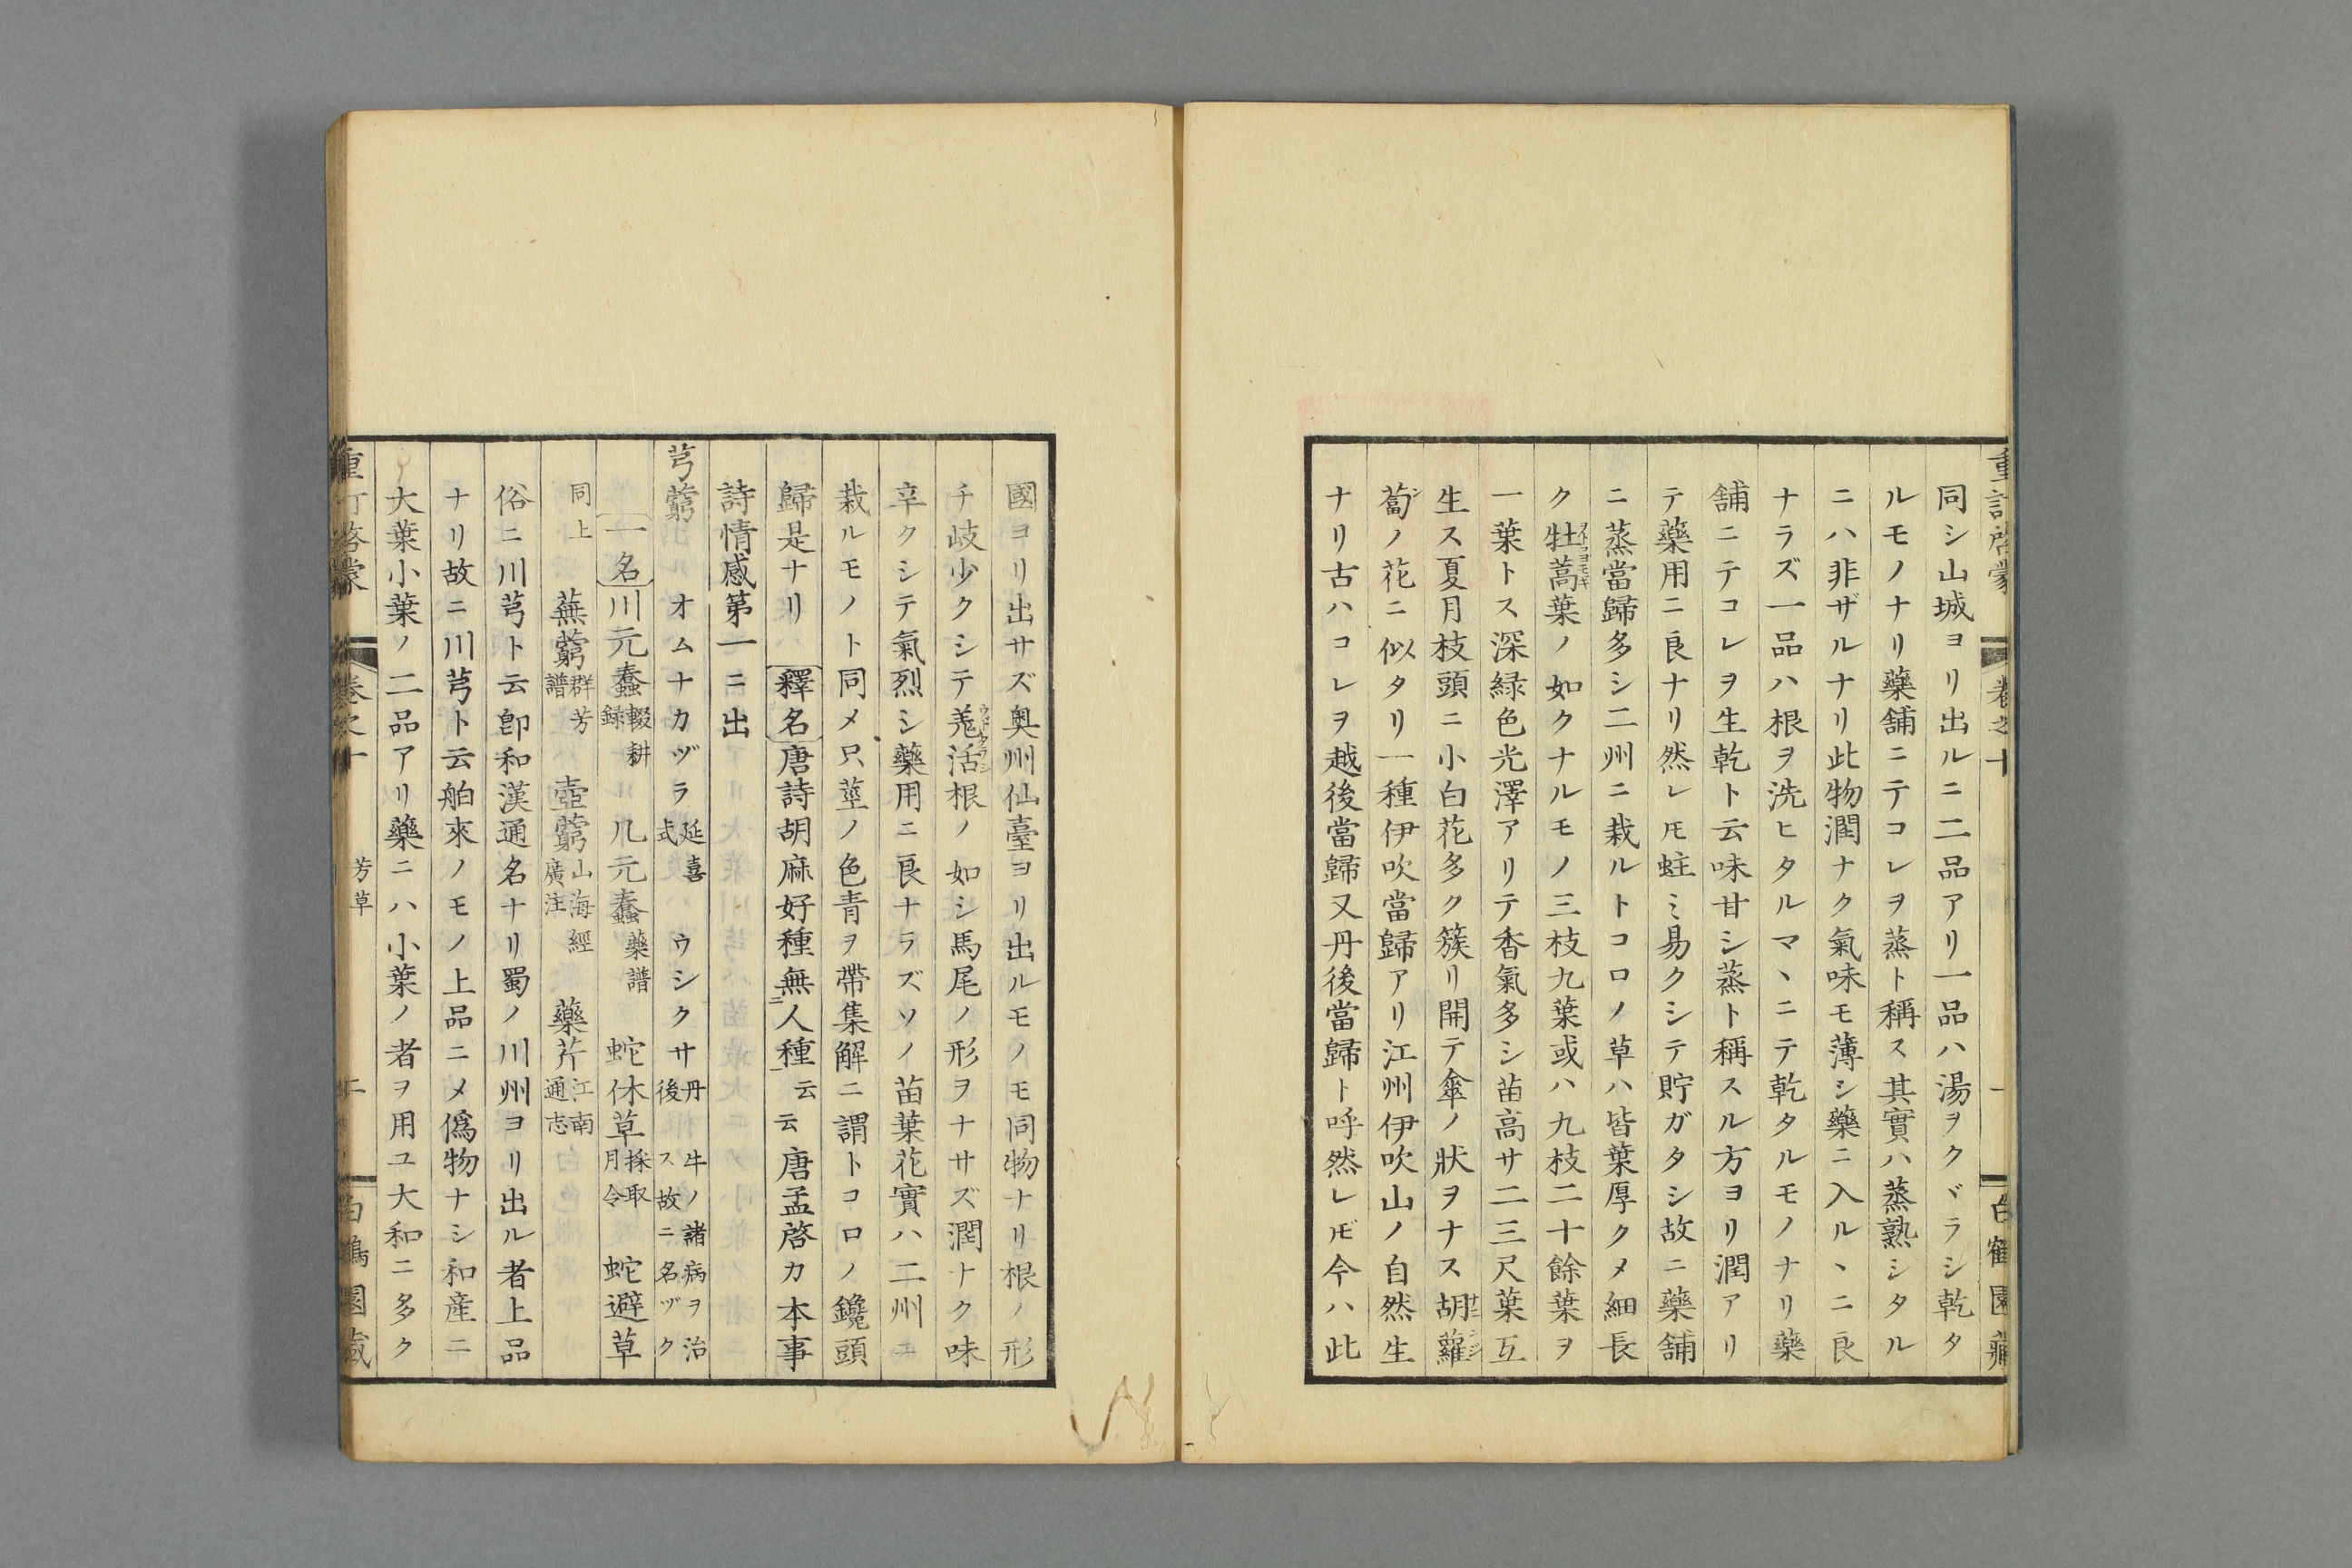 同シ山城ヨリ出ルニ二品アリ一品ハ湯ヲクヾラシ乾タ
ルモノナリ藥舗ニテコレヲ蒸ト稱ス其實ハ蒸熟シタル
ニハ非ザルナリ此物潤ナク氣味モ薄シ藥ニ入ルヽニ良
ナラズ一品ハ根ヲ洗ヒタルマヽニテ乾タルモノナリ藥
舗ニテコレヲ生乾ト云味甘シ蒸ト稱スル方ヨリ潤アリ
テ藥用ニ良ナリ然レ𪜈蛀ミ易クシテ貯ガタシ故ニ藥舗
ニ蒸當歸多シ二州ニ栽ルトコロノ草ハ皆葉厚クメ細長
ク牡蒿葉ノ如クナルモノ三枝九葉或ハ九枝二十餘葉ヲ
一葉トス深緑色光澤アリテ香氣多シ苗高サ二三尺葉互
生ス夏月枝頭ニ小白花多ク簇リ開テ傘ノ狀ヲナス胡蘿
蔔ノ花ニ似タリ一種伊吹當歸アリ江州伊吹山ノ自然生
ナリ古ハコレヲ越後當歸又丹後當歸ト呼然レ𪜈今ハ此
國ヨリ出サズ奥州仙臺ヨリ出ルモノモ同物ナリ根ノ形
チ岐少クシテ羗活根ノ如シ馬尾ノ形ヲナサズ潤ナク味
辛クシテ氣烈シ藥用ニ良ナラズソノ苗葉花實ハ二州ニ
栽ルモノト同メ只莖ノ色青ヲ帶集解ニ謂トコロノ鑱頭
歸是ナリ 釋名唐詩胡麻好種無人種云云唐孟啓カ本事
詩情感第一ニ出
芎藭 オムナカヅラ延喜式 ウシクサ丹後 牛ノ諸病ヲ治ス故ニ名ヅク
一名川元蠢輟耕録 几元蠢藥譜 蛇休草採取月令 蛇避草
同上 蕪藭群芳譜 壺藭山海經廣注 藥芹江南通志
俗ニ川芎ト云卽和漢通名ナリ蜀ノ川州ヨリ出ル者上品
ナリ故ニ川芎ト云舶來ノモノ上品ニメ僞物ナシ和産ニ
大葉小葉ノ二品アリ藥ニハ小葉ノ者ヲ用ユ大和ニ多ク
重訂啓蒙 卷之十 芳草 二 白鶴園藏